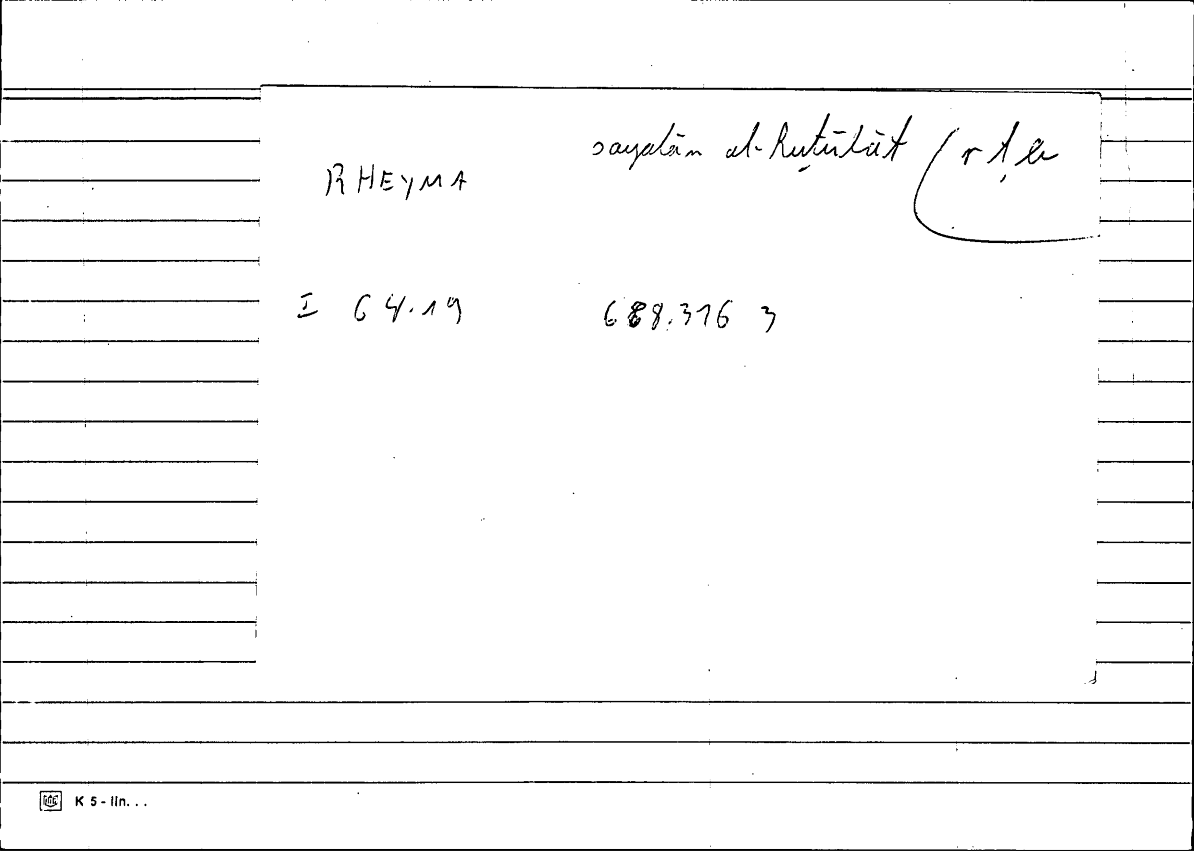 sayalān al-ruṭūbāt (rṭb
RHEYMA
I 64.19 688.316 3
K 5 - lin. . .